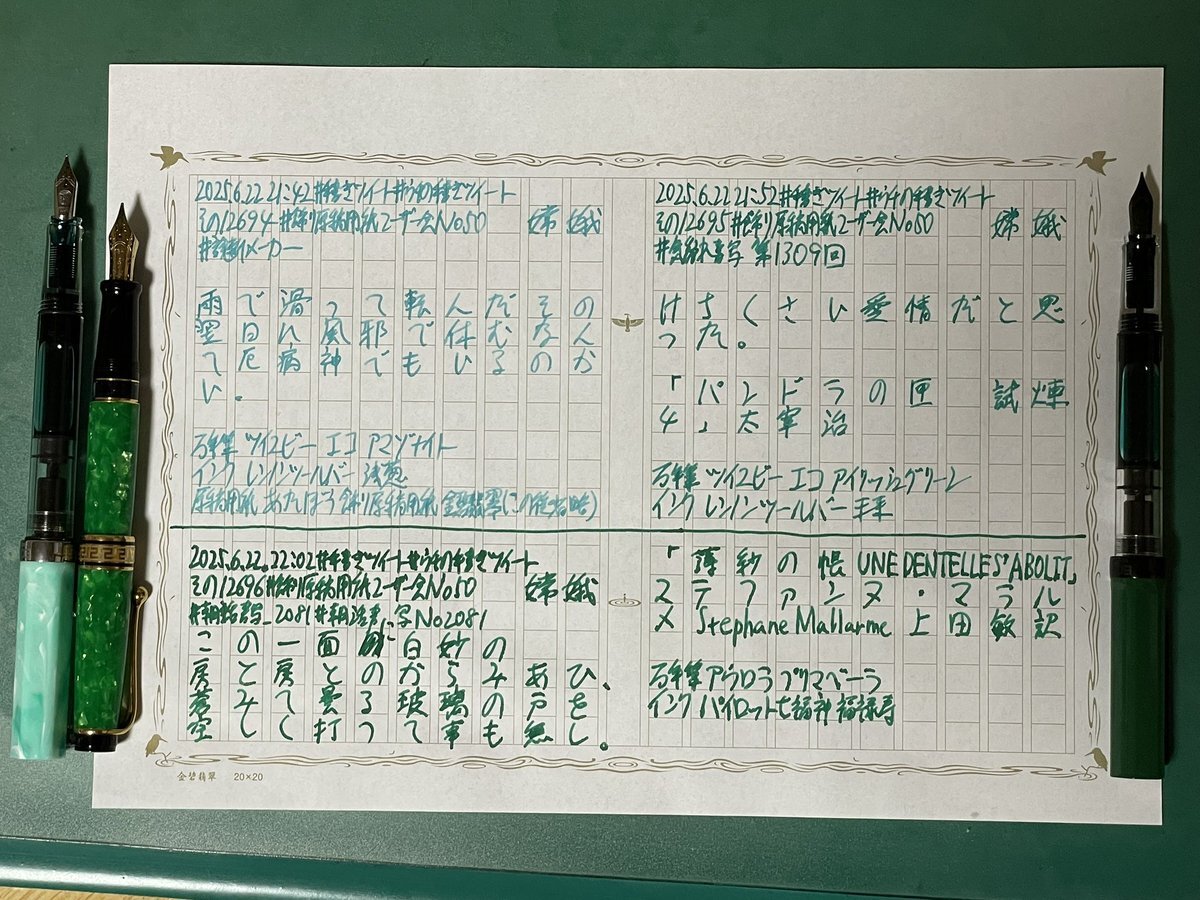 2025.6.22 21:42#手書きツイート#うちの手書きツイート
その12694#飾り原稿用紙ユーザー会No50 嫦娥
メーカー
雨で滑って転んだその
翌日に風邪で休むなん
て厄病神でもいるのか
い。
万年筆 ツイスビー エコ アマゾナイト
インク レンノンツールバー 浅葱
原稿用紙 あたぼう 飾り原稿用紙 金碧翡翠(この後省略)
2025.6.22 21:52#手書きツイート#うちの手書きツイート
その12695#飾り原稿用紙ユーザー会No50 嫦娥
写 第1309回
けちくさい愛情だと思
った。
「パンドラの匣 試煉
4」太宰治
万年筆 ツイスビー エコ アイリッシュグリーン
インク レンノンツールバー
2025.6.22.22:02#手書きツイート#うちの手書きツイート
その12696#飾り原稿用紙ユーザー会No50 嫦娥
#朝活書写_2081#朝活書写No2081
この一面の白妙の
房と房とのからみあひ、
蒼みて曇る玻璃の戸を
空しく打つて事も無し。
「薄紗の帳 UNE DENTELLE S'ABOLIT」
ステファンヌ・マラル
メ Stephane Mallarme 上田敏訳
万年筆 アウロラ プリマベーラ
インク パイロット七福神 福禄寿
金碧翡翠 20×20